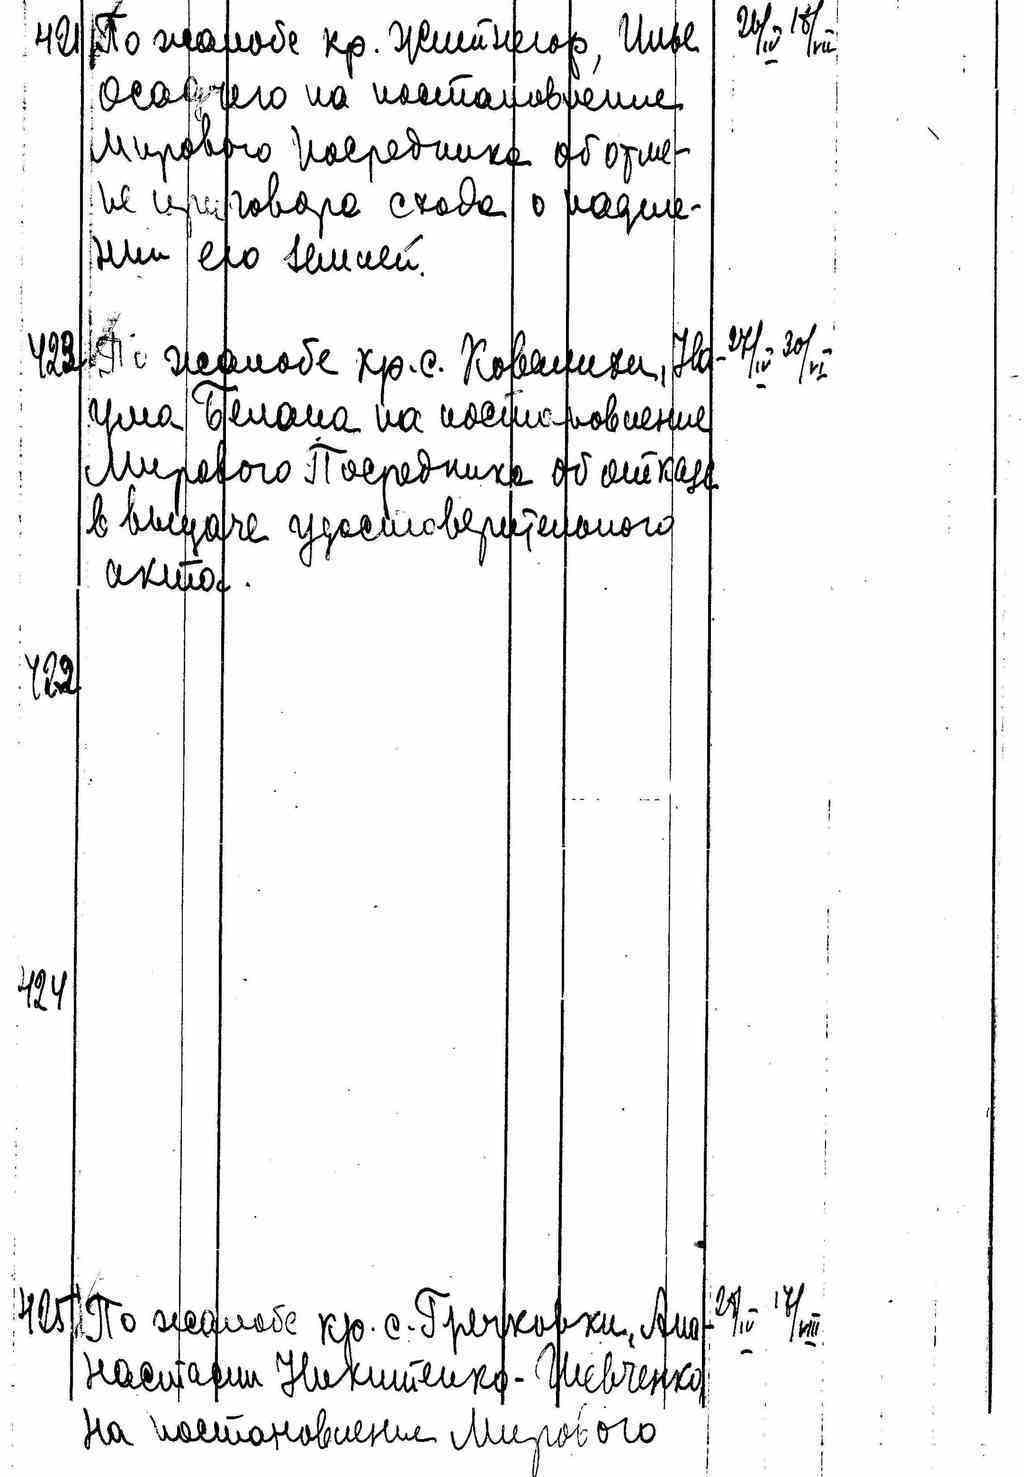 421 По жалобе кр. Житнегор, Ильи 26/IV 18/VII
осадчего на постановление
Мирового Посредника об отме-
не приговора схода о наделе-
нии его землей.
423 По жалобе кр. с. Ковалихи, На- 27/IV 30/VI
ума Белана на постановление
Мирового Посредника об отказе
в выдаче удостоверительного
акта.
422
424
425 По жалобе кр. с. Гречковки, Ана- 28/IV 17/VIII
настасии Никитенко-Шевченко
на постановление Мирового